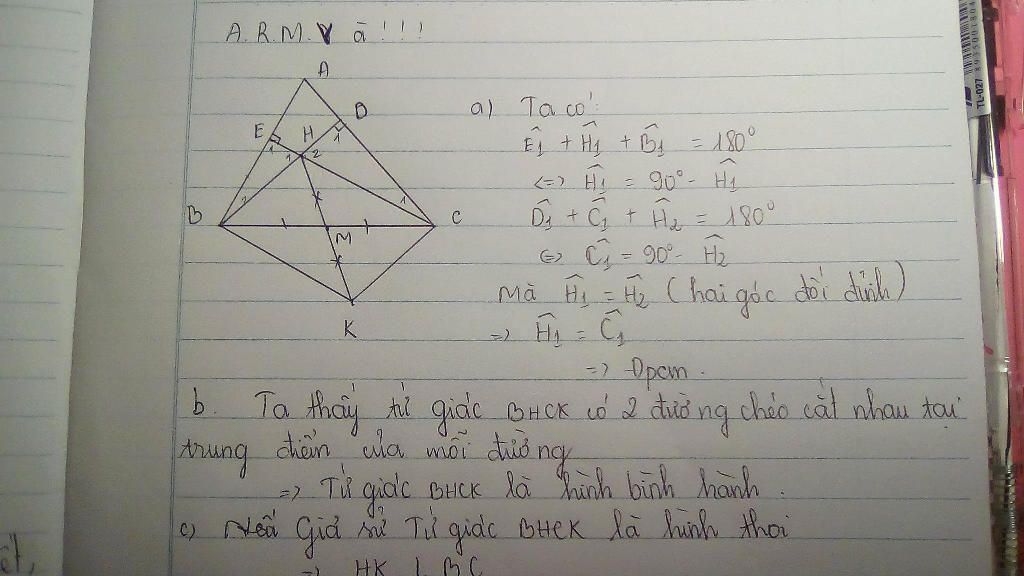 A.R.M.Y à!!!
A
D
E
H
1
1
1
2
1
1
B
C
M
K
a) Ta có:
Ê₁ + Ĥ₁ + B̂₁ = 180⁰
<=> Ĥ₁ = 90⁰ - Ĥ₁
D̂₁ + Ĉ₁ + Ĥ₂ = 180⁰
<=> Ĉ₁ = 90⁰ - Ĥ₂
Mà Ĥ₁ = Ĥ₂ (hai góc đối đỉnh)
=> Ĥ₁ = Ĉ₁
=> Đpcm.
b. Ta thấy tứ giác BHCK có 2 đường chéo cắt nhau tại
trung điểm của mỗi đường
=> Tứ giác BHCK là hình bình hành.
c) Giả sử Tứ giác BHCK là hình thoi
=> HK ⊥ BC
TL-027